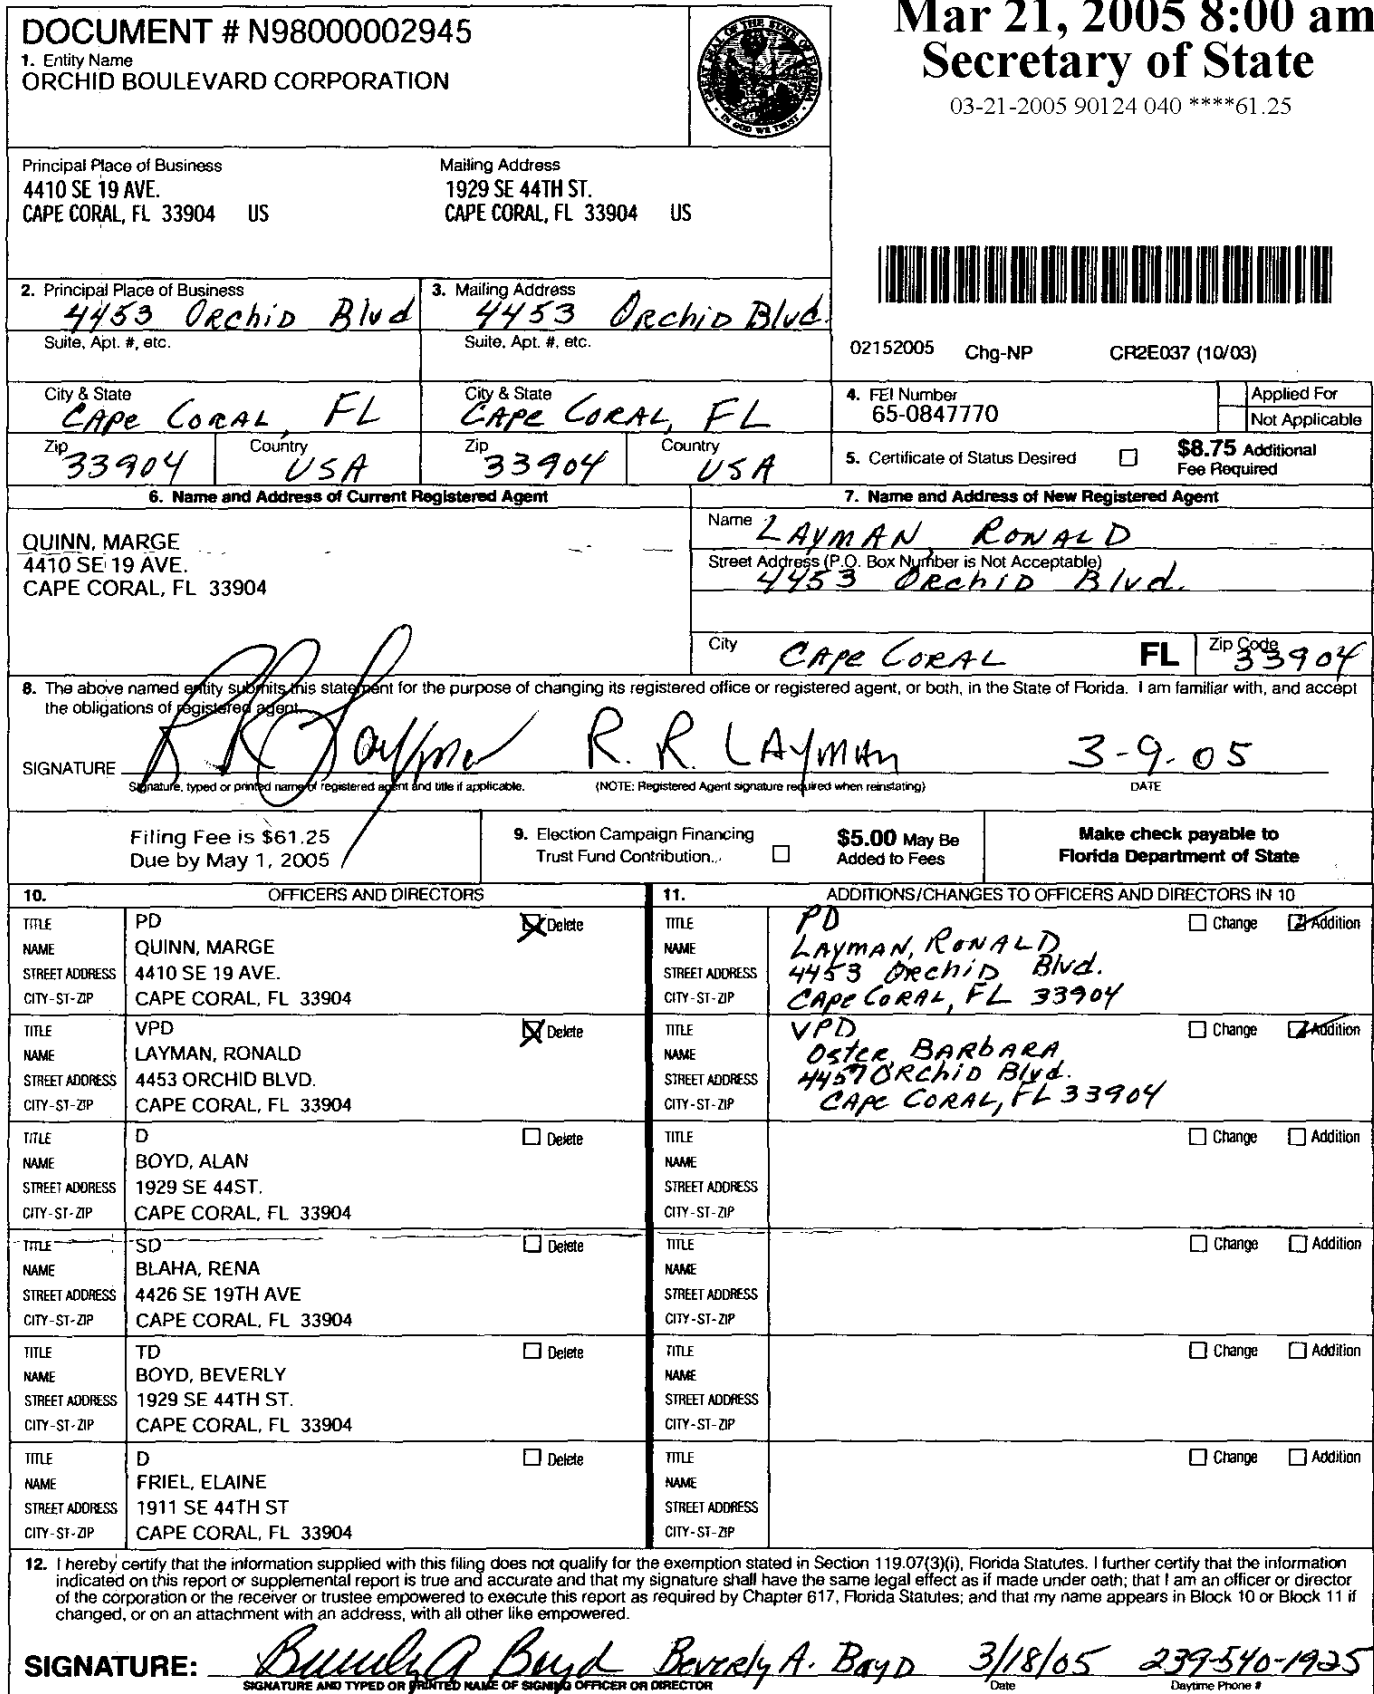 DOCUMENT # N98000002945
1. Entity Name
ORCHID BOULEVARD CORPORATION
GREAT SEAL OF THE STATE OF FLORIDA
IN GOD WE TRUST
Mar 21, 2005 8:00 am
Secretary of State
03-21-2005 90124 040 ****61.25
Principal Place of Business
4410 SE 19 AVE.
CAPE CORAL, FL 33904 US
Mailing Address
1929 SE 44TH ST.
CAPE CORAL, FL 33904 US
2. Principal Place of Business
4453 Orchid Blvd
Suite, Apt. #, etc.
City & State
Cape Coral, FL
Zip 33904 Country USA
3. Mailing Address
4453 Orchid Blvd.
Suite, Apt. #, etc.
City & State
Cape Coral, FL
Zip 33904 Country USA
02152005 Chg-NP CR2E037 (10/03)
4. FEI Number
65-0847770
Applied For
Not Applicable
5. Certificate of Status Desired
$8.75 Additional
Fee Required
6. Name and Address of Current Registered Agent
QUINN, MARGE
4410 SE 19 AVE.
CAPE CORAL, FL 33904
7. Name and Address of New Registered Agent
Name LAYMAN, RONALD
Street Address (P.O. Box Number is Not Acceptable)
4453 Orchid Blvd.
City Cape Coral FL Zip Code 33904
8. The above named entity submits this statement for the purpose of changing its registered office or registered agent, or both, in the State of Florida. I am familiar with, and accept
the obligations of registered agent.
SIGNATURE R R Layman R. R. LAYMAN 3-9-05
Signature, typed or printed name of registered agent and title if applicable. (NOTE: Registered Agent signature required when reinstating) DATE
Filing Fee is $61.25
Due by May 1, 2005
9. Election Campaign Financing
Trust Fund Contribution.
$5.00 May Be
Added to Fees
Make check payable to
Florida Department of State
10. OFFICERS AND DIRECTORS
TITLE PD Delete
NAME QUINN, MARGE
STREET ADDRESS 4410 SE 19 AVE.
CITY-ST-ZIP CAPE CORAL, FL 33904
TITLE VPD Delete
NAME LAYMAN, RONALD
STREET ADDRESS 4453 ORCHID BLVD.
CITY-ST-ZIP CAPE CORAL, FL 33904
TITLE D Delete
NAME BOYD, ALAN
STREET ADDRESS 1929 SE 44ST.
CITY-ST-ZIP CAPE CORAL, FL 33904
TITLE SD Delete
NAME BLAHA, RENA
STREET ADDRESS 4426 SE 19TH AVE
CITY-ST-ZIP CAPE CORAL, FL 33904
TITLE TD Delete
NAME BOYD, BEVERLY
STREET ADDRESS 1929 SE 44TH ST.
CITY-ST-ZIP CAPE CORAL, FL 33904
TITLE D Delete
NAME FRIEL, ELAINE
STREET ADDRESS 1911 SE 44TH ST
CITY-ST-ZIP CAPE CORAL, FL 33904
11. ADDITIONS/CHANGES TO OFFICERS AND DIRECTORS IN 10
TITLE PD Change Addition
NAME LAYMAN, RONALD
STREET ADDRESS 4453 Orchid Blvd.
CITY-ST-ZIP Cape Coral, FL 33904
TITLE VPD Change Addition
NAME Oster, BARBARA
STREET ADDRESS 4457 Orchid Blvd.
CITY-ST-ZIP Cape Coral, FL 33904
TITLE Change Addition
NAME
STREET ADDRESS
CITY-ST-ZIP
TITLE Change Addition
NAME
STREET ADDRESS
CITY-ST-ZIP
TITLE Change Addition
NAME
STREET ADDRESS
CITY-ST-ZIP
TITLE Change Addition
NAME
STREET ADDRESS
CITY-ST-ZIP
12. I hereby certify that the information supplied with this filing does not qualify for the exemption stated in Section 119.07(3)(i), Florida Statutes. I further certify that the information
indicated on this report or supplemental report is true and accurate and that my signature shall have the same legal effect as if made under oath; that I am an officer or director
of the corporation or the receiver or trustee empowered to execute this report as required by Chapter 617, Florida Statutes; and that my name appears in Block 10 or Block 11 if
changed, or on an attachment with an address, with all other like empowered.
SIGNATURE: Beverly A Boyd Beverly A. Boyd 3/18/05 239-540-1925
SIGNATURE AND TYPED OR PRINTED NAME OF SIGNING OFFICER OR DIRECTOR Date Daytime Phone #